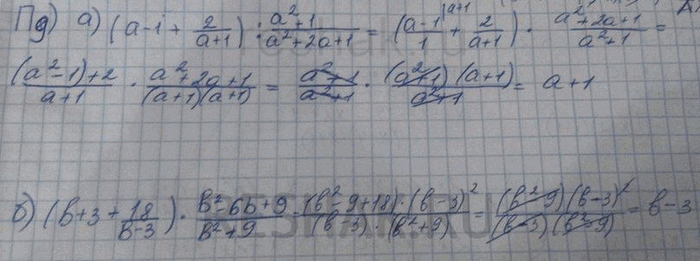 Пд) а) (a-1 + 2/(a+1)) : (a²+1)/(a²+2a+1) = ((a-1)/1 |a+1 + 2/(a+1)) · (a²+2a+1)/(a²+1) =
((a²-1)+2)/(a+1) · (a²+2a+1)/((a+1)(a+1)) = (a²+1)/(a²+1) · ((a²+1)(a+1))/(a²+1) = a+1
б) (b+3 + 18/(b-3)) · (b²-6b+9)/(b²+9) = ((b²-9+18)·(b-3)²)/((b-3)·(b²+9)) = ((b²9)(b-3)²)/((b-3)(b²+9)) = b-3